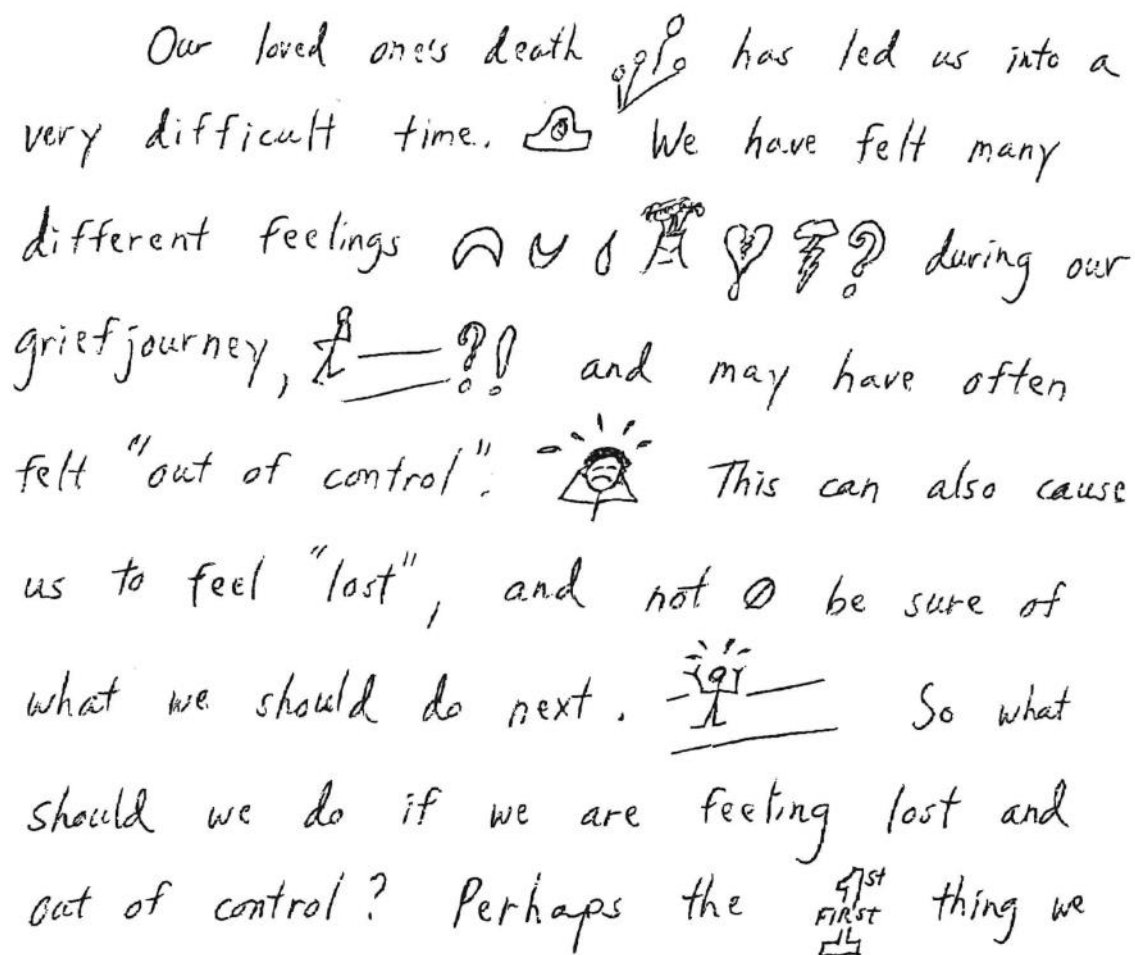 Our loved one's death has led us into a
very difficult time. We have felt many
different feelings ? during our
grief journey, ?! and may have often
felt "out of control". This can also cause
us to feel "lost", and not be sure of
what we should do next. So what
should we do if we are feeling lost and
out of control? Perhaps the 1st FIRST thing we